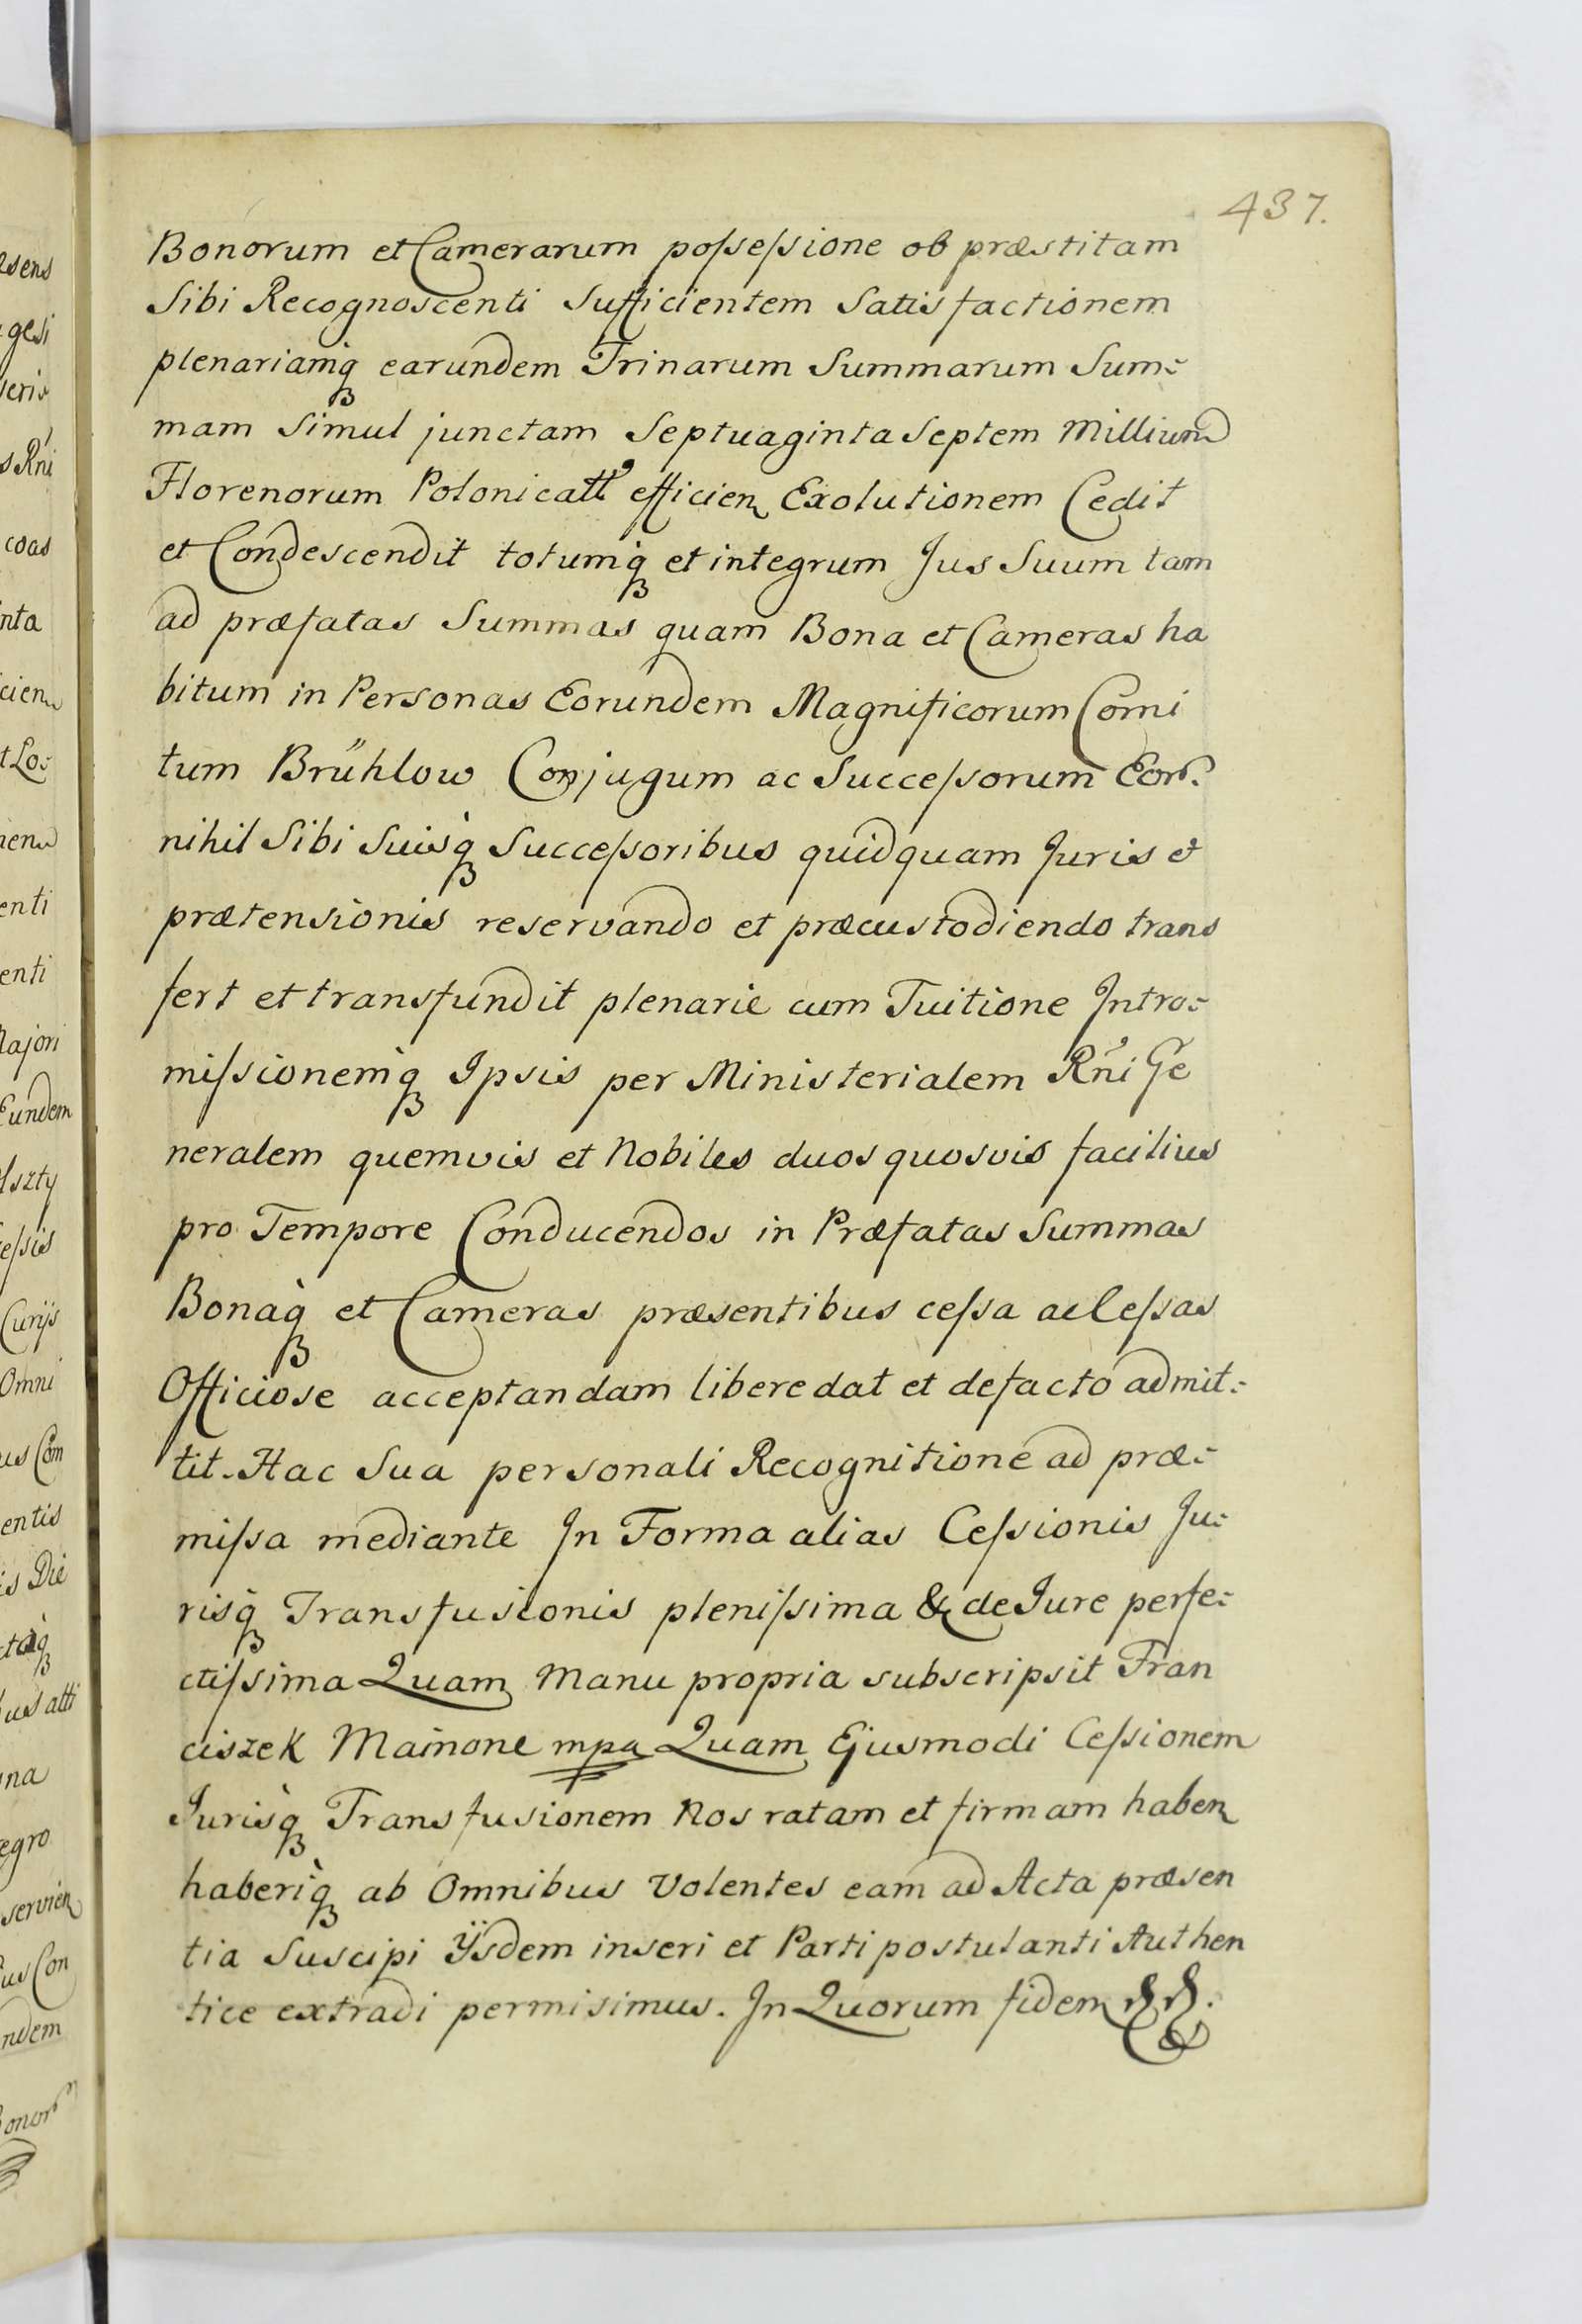 437.
Bonorum et Camerarum possessione ob præstitam
Sibi Recognoscenti Sufficientem Satisfactionem
plenariamq́ꝫ earundem Trinarum Summarum Sum=
mam Simul junctam Septuaginta Septem Millium
Florenorum Polonicall efficien Exolutionem Cedit
et Condescendit totumq́ꝫ et integrum Jus Suum tam
ad præfatas Summas quam Bona et Cameras ha
bitum in Personas Eorundem Magnificorum Comi
tum Brühlow Conjugum ac Successorum Eor.
nihil Sibi Suisq́ꝫ Successoribus quidquam Juris et
prætensionis reservando et præcustodiendo trans
fert et transfundit plenarie cum Tuitione Intro=
missionemq́ꝫ Ipsis per Ministerialem Rńi Ge
neralem quemvis et Nobiles duos quosvis facilius
pro Tempore Conducendos in Præfatas Summas
Bonaq́ꝫ et Cameras præsentibus cessa ac Cessas
Officiose acceptandam libere dat et defacto admit=
tit. Hac Sua personali Recognitione ad præ=
missa mediante In Forma alias Cessionis Ju=
risq́ꝫ Transfusionis plenissima & de Jure perfe=
ctissima Quam Manu propria subscripsit Fran
ciszek Mainone mpa Quam Ejusmodi Cessionem
Jurisq́ꝫ Transfusionem Nos ratam et firmam haben
haberiq́ꝫ ab Omnibus Volentes eam ad Acta præsen
tia Suscipi Ÿsdem inseri et Parti postulanti Authen
tice extradi permisimus. In Quorum fidem
esens
gesi
Rńi
coas
nta
cien
enti
enti
Majori
Eundem
Curijs
Omni
us Com
entis
is Die
una
egro
servien
us Con
ndem